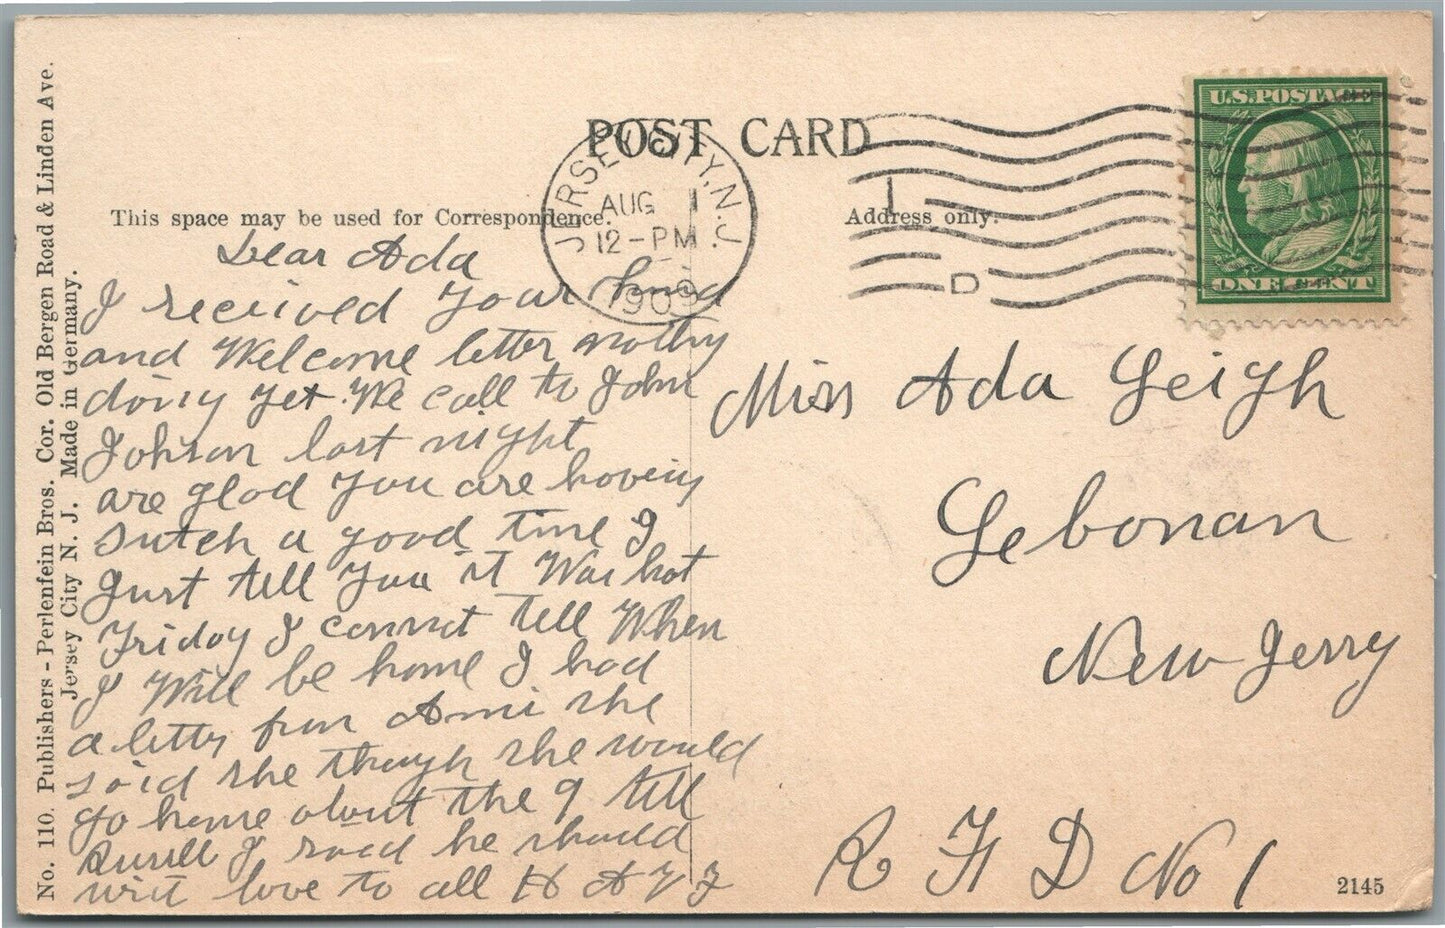 POST CARD
This space may be used for Correspondence.
Address only.
JERSEY CITY, N.J.
AUG 1
12-PM
1909
1
D
U.S. POSTAGE
ONE CENT
Dear Ada
I received your kind
and Welcome letter
doing yet We call to John
Johson last night
are glad you are haveing
sutch a good time I
Jurt tell you it Was hot
Friday I connot tell When
I Will be home I had
a letter from she
said she though she would
go home about the 9 tell
Rusell I said he should
writ love to all H A
Miss Ada Leigh
Lebonan
New Jerry
R F D No 1
2145
No. 110. Publishers - Perlenfein Bros. Cor. Old Bergen Road & Linden Ave.
Jersey City N. J. Made in Germany.